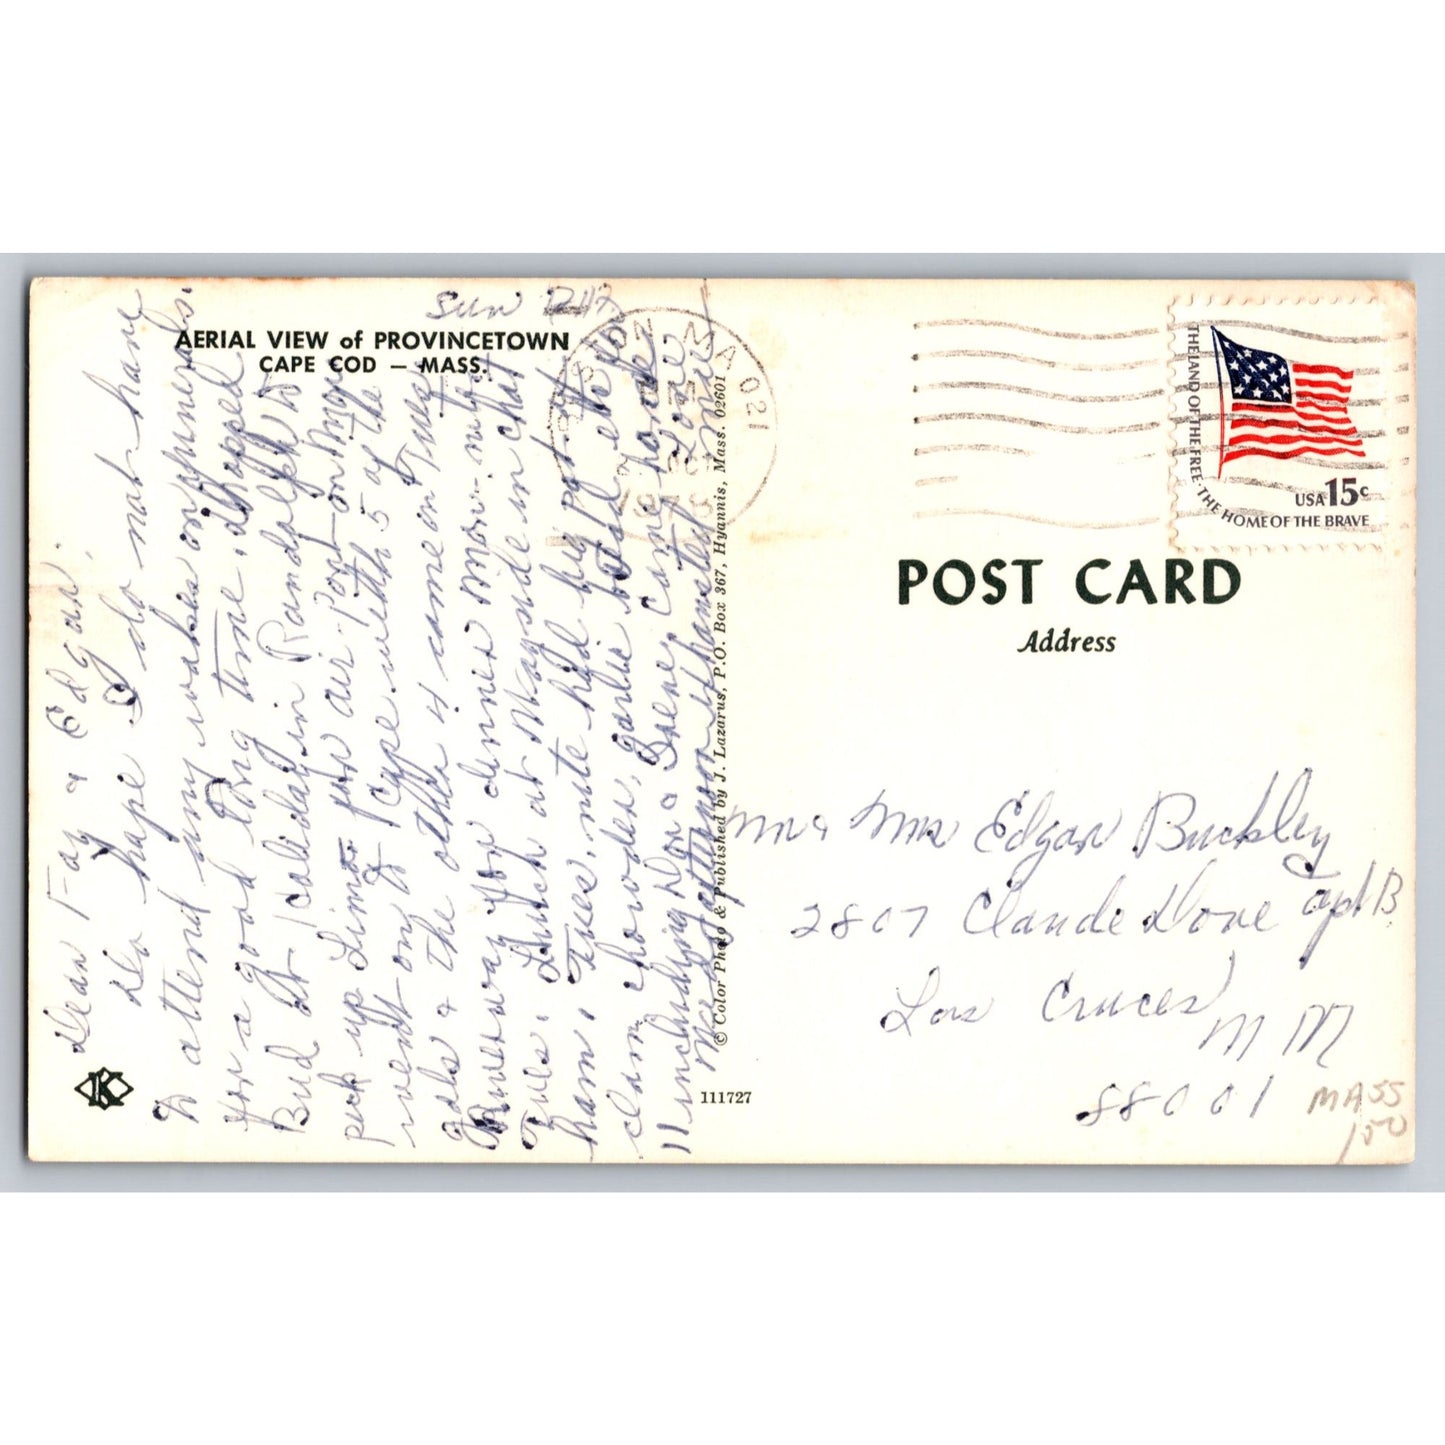 Sun
AERIAL VIEW of PROVINCETOWN
CAPE COD — MASS.
Dear Fay & Edgar:
Do hope I do not have
to attend any wakes or funerals
for a good long time. Shopped
Bud at Holiday in Randolph to
pick up Limo for air Port on Mon
went on to Cape with 5 of the
gals & the other 4 came on Tues
way for dinner Mon. nite
Tues. Lunch at Wayside in Chat
ham, Tues. nite had big pot
clam chowder, garlic bread etc for
11 including Don & Irene, Came home
exhausted Love
© Color Photo & Published by J. Lazarus, P.O. Box 367, Hyannis, Mass. 02601
K
111727
MA 021
THE LAND OF THE FREE · THE HOME OF THE BRAVE
USA 15c
POST CARD
Address
Mr & Mrs Edgar Buckley
2807 Claude Dove apt B
Las Cruces
N M
88001
MASS
150